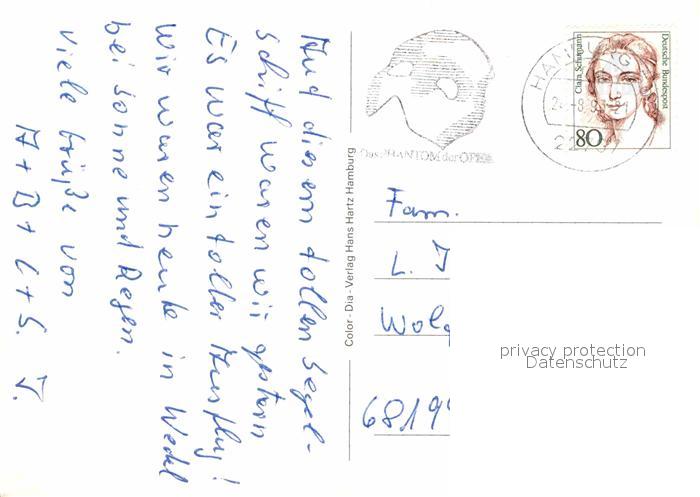 Auf diesem tollen Segel-
schiff waren wir gestern
Es war ein toller Ausflug!
Wir waren heute in Wedel
bei Sonne und Regen.
Viele Grüße von
A + B + C + S. J.
Color - Dia - Verlag Hans Hartz Hamburg
Das PHANTOM der OPER
HAMBURG
Clara Schumann
Deutsche Bundespost
80
Fam.
L. J
Wolg
6819
privacy protection
Datenschutz